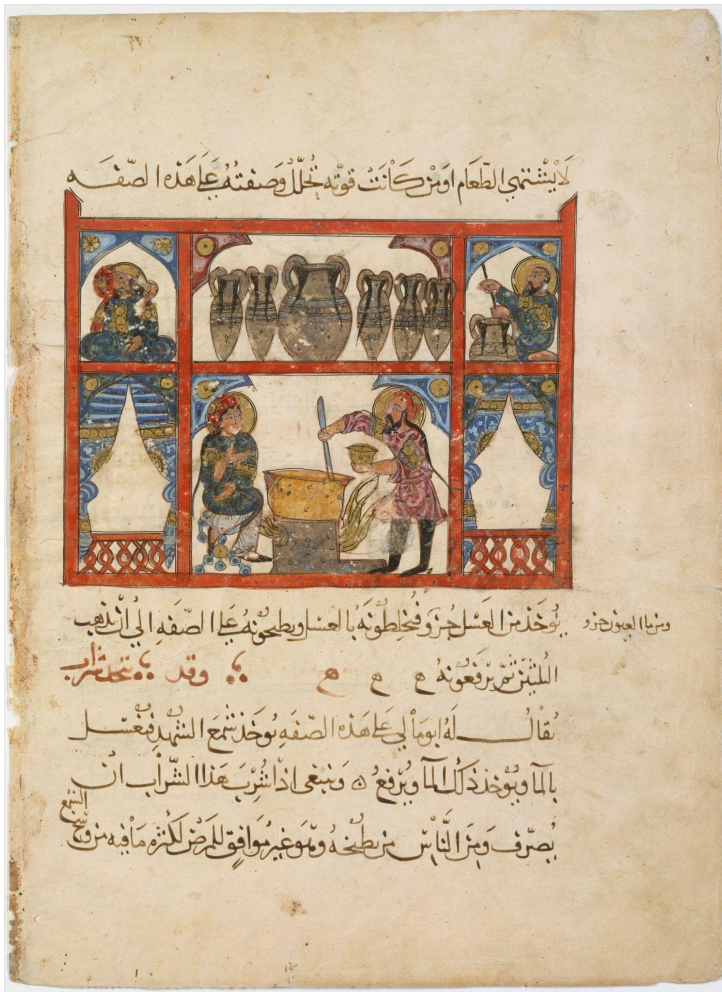 لا يشتهي الطعام او من كانت قوته تحلل وصفته على هذه الصفه
يوخذ من العسل جزو فيخلطونه بالعسل ويطبخونه على الصفه الى ان يذهب
ومن ما العيون جزو
الثلثين ثم يرفعونه وقد يتخذ شراب
يقال له ابومالي على هذه الصفه يوخذ شمع الشهد فيغسل
بالما ويوخذ ذلك الما ويرفع وينبغى اذا شرب هذا الشراب ان
يصرف ومن الناس من يطبخه وهو غير موافق للمرض لكثره ما فيه من وسخ
الشمع